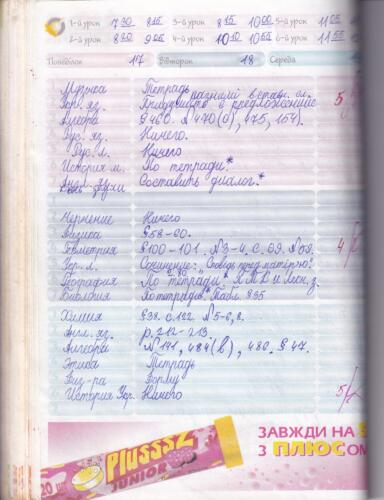 1-й урок 7 30 8 15 3-й урок 8 15 10 00 5-й урок 11 05
2-й урок 8 20 9 05 4-й урок 10 10 10 55 6-й урок 11 55
Понеділок 17 Вівторок 18 Середа
Музыка Тетрадь
Укр. яз. Придумать 6 предложений с разними встав. сл. 5
Алгебра §460. №470(а), 475, 154).
Рус. яз. Ничего.
Рус. л. Ничего
История м. По тетради.*
Составить диалог.*
Черчение Ничего
Физика §58-60.
Геометрия §100-101. №3-4. с.
Укр. л. Сочинение: "Сповідь перед матір'ю". 4
География По тетради. §
Биология По тетради. Табл. §35
Химия §38. с. 122. №5-6, 8.
Англ. яз. p. 212-213
Алгебра № 171, 484(в), 480. § 47.
Этика Тетрадь
Физ-ра Форма
История Укр. Ничего 5
20 шт
Plusssz
JUNIOR
ЗАВЖДИ НА
З ПЛЮСОМ